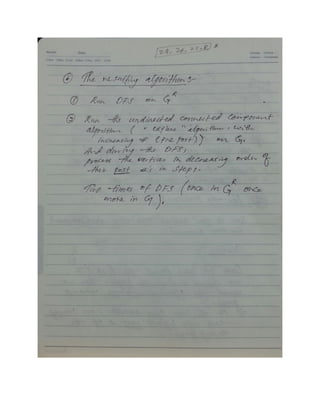 The resulting algorithm:-
① Run DFS on G^R
② Run the undirected connected component
algorithm ( "explore" algorithm with
increasing # (pre, post)) on G.
And during the DFS,
process the vertices in decreasing order of
their post #'s in step 1.
Two-times of DFS (once in G^R once
more in G).